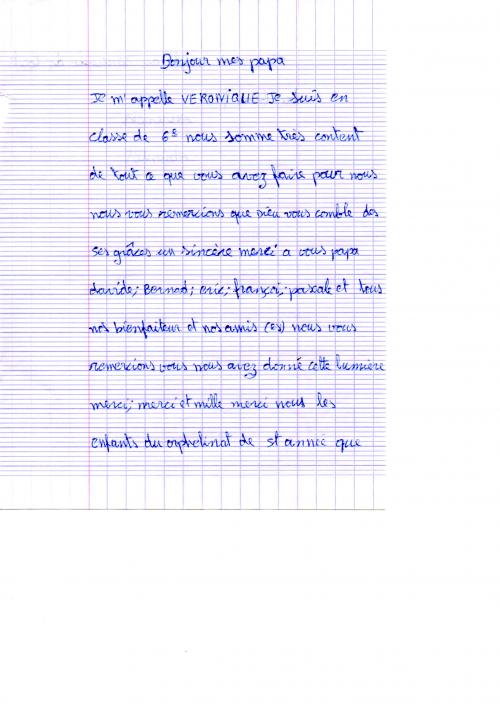 Bonjour mes papa
Je m'appelle VERONIQUE Je suis en
classe de 6e nous somme très content
de tout ce que vous avez faire pour nous
nous vous remercions que Dieu vous comble des
ses grâces un sincère merci a vous papa
davide; Bernad; eric; françoi; pascale et tous
nos bienfaiteur et nos amis (es) nous vous
remercions vous nous avez donné cette lumière
merci; merci et mille merci nous les
enfants du orphelinat de st année que